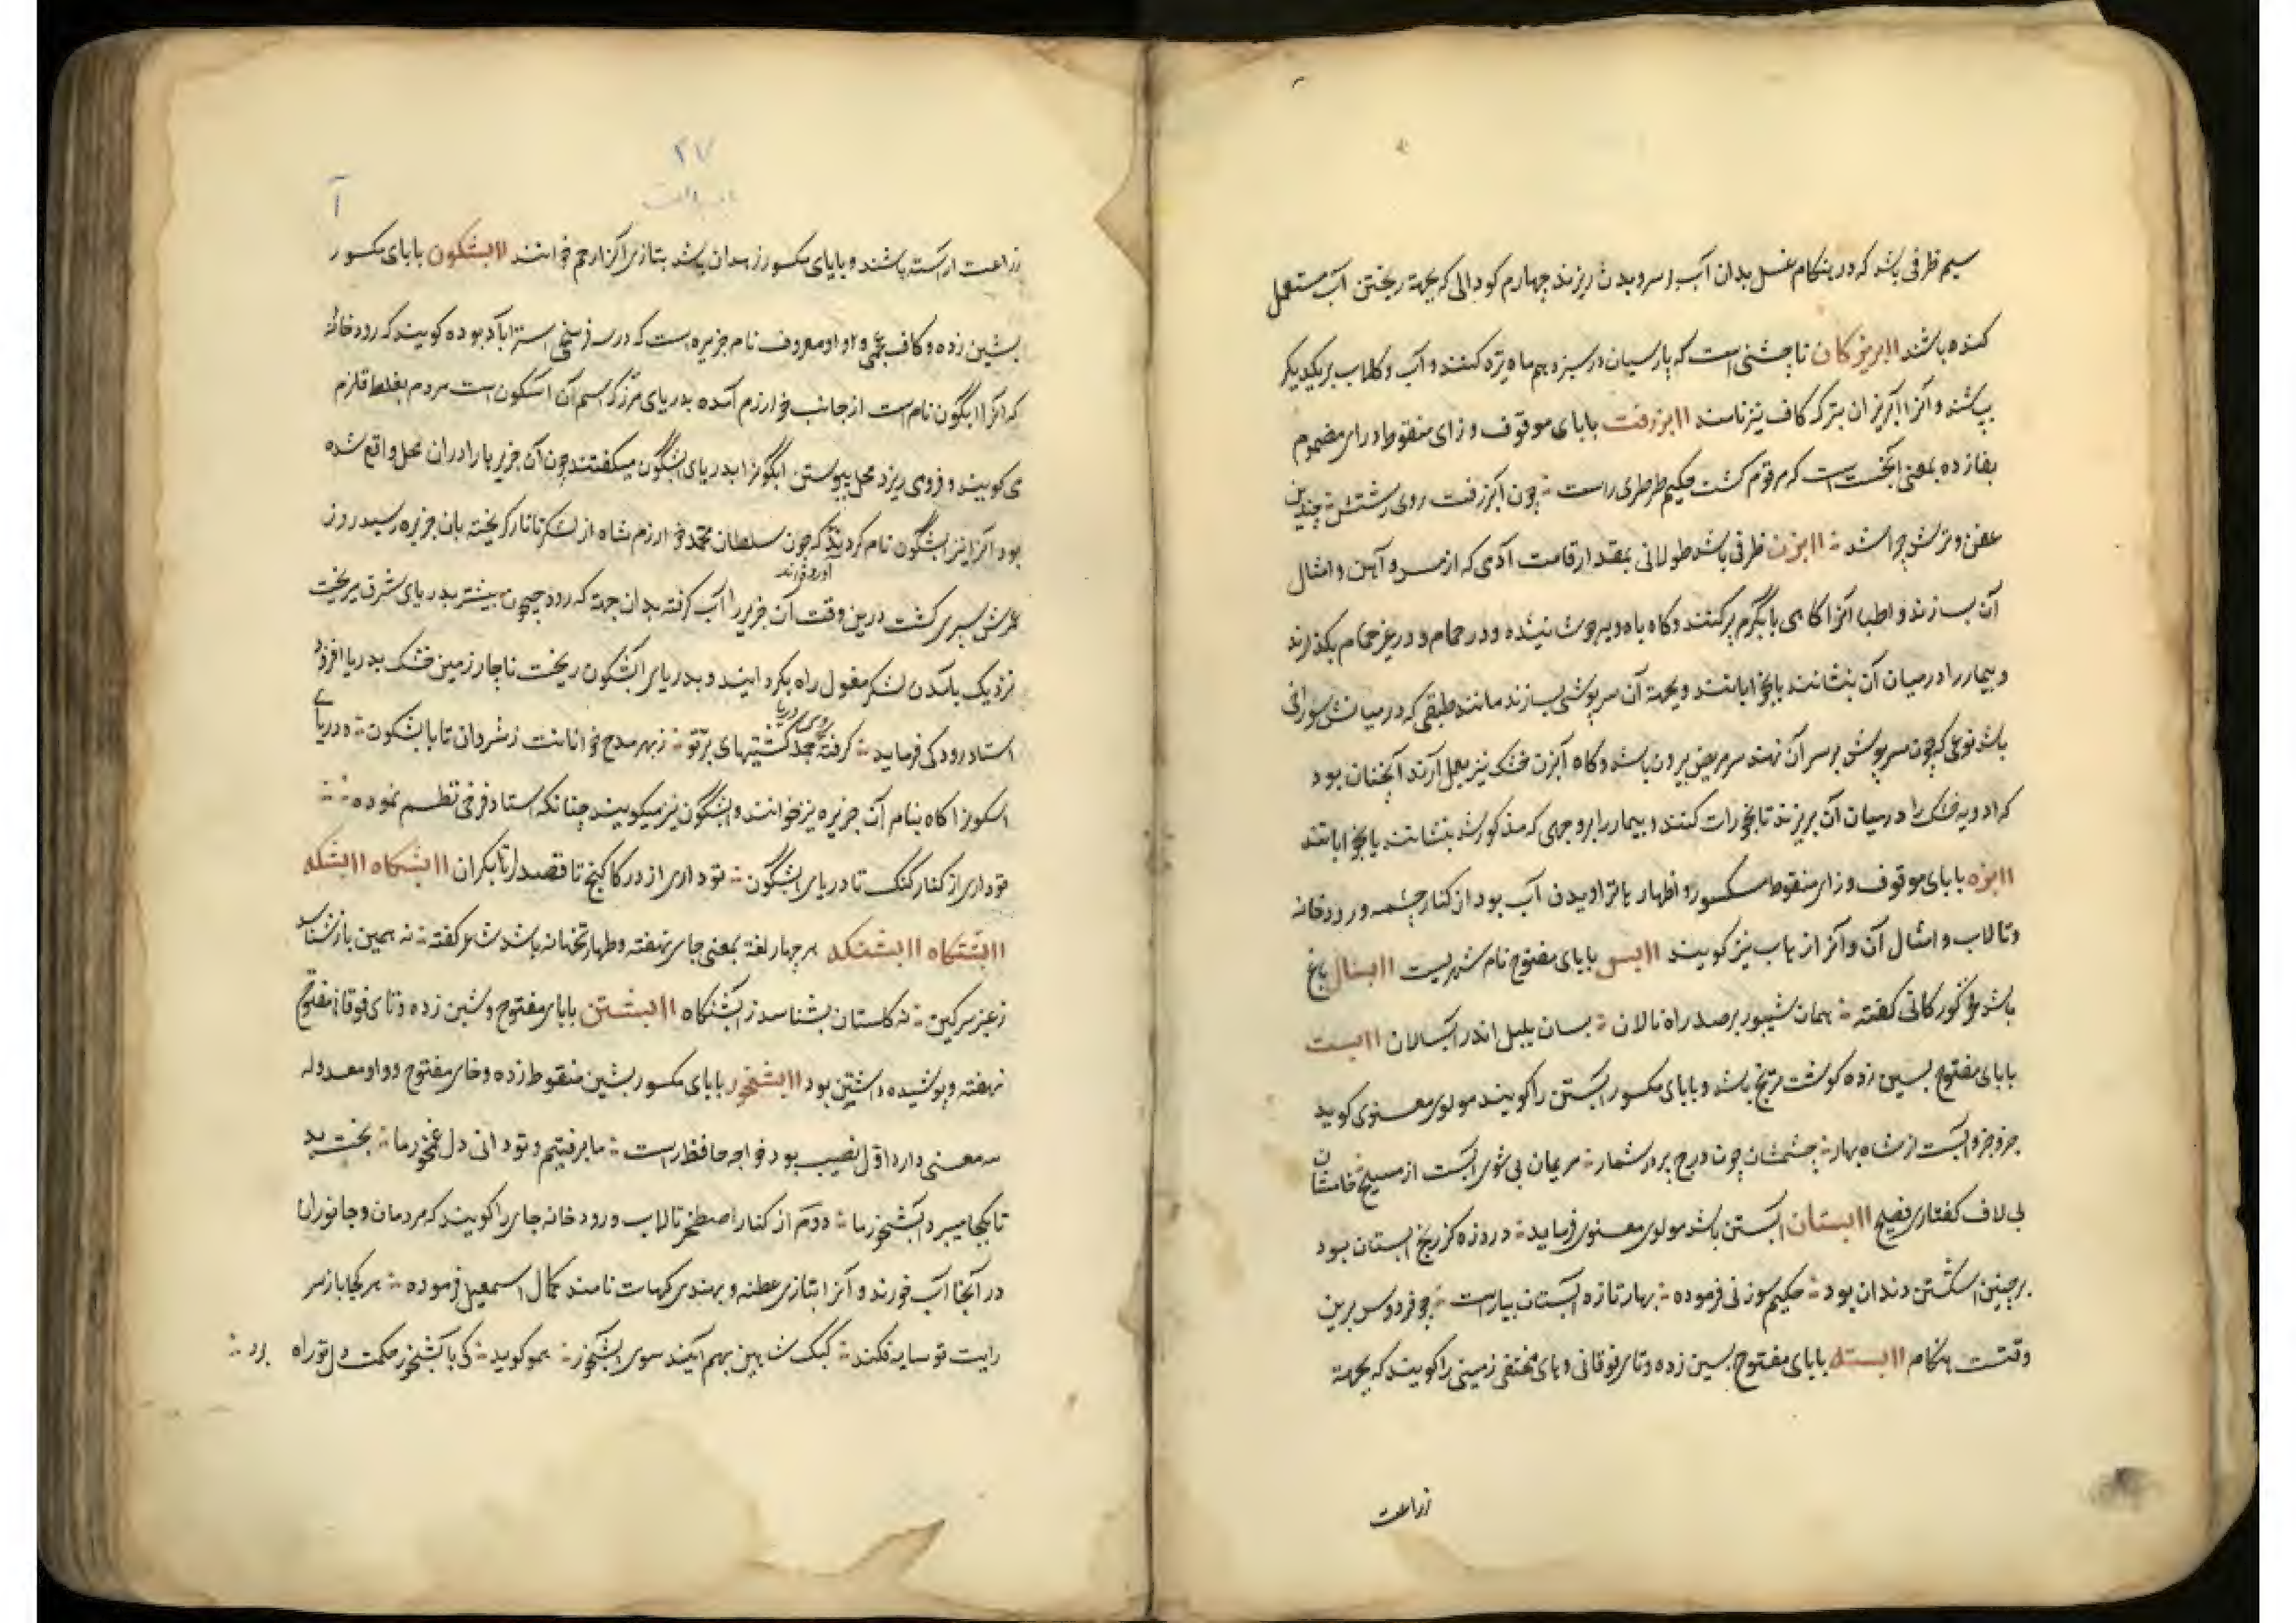 سیم ظرفی باشد که در هنگام غسل بدان آب بر سر و بدن ریزند چهارم کودالی که بجهة ریختن آب مستعمل
کنده باشند اابریزکان نام جشنی است که پارسیان در سیزدهم ماه تیر کنند و آب و کلاب بر یکدیکر
بپاشند و آنرا آبریزان بترک کاف نیز نامند اابزرفت بابای موقوف و زای منقوطه و رای مضموم
بفازده بمعنی است که مرقوم کشت حکیم طرطری راست چون ابزرفت روی رشتش چندین
عفن و ترش چرا شد اابزن ظرفی باشد طولانی بمقدار قامت آدمی که از مس و آهن و امثال
آن بسازند و اطبا آنرا کاهی بآب گرم پر کنند و کاه باه ویه جوشانیده و در حمام و در غیر حمام بکذارند
و بیمار را در میان آن بنشانند یا بخوابانند و بجهة آن سرپوشی بسازند مانند طبقی که در میانش سوراخی
باشد نوعی که چون سرپوش بر سر آن نهند سر مریض بیرون باشد و کاه آبزن خشک نیز بعمل آرند آنچنان بود
که ادویه خشک را در میان آن بریزند تا بخورات کنند و بیمار را بر وجهی که مذکور شد بنشانند یا بخوابانند
اابزه بابای موقوف و زای منقوطه مکسور و اظهار ها تراویدن آب بود از کنار چشمه و رودخانه
و تالاب و امثال آن و آنرا زهاب نیز کویند اابس بابای مفتوح نام شهریست اابسال باغ
باشد فخر کورکانی کفته همان شیپور بر صد راه نالان بسان بلبل اندر آبسالان اابست
بابای مفتوح بسین زده کوشت ترنج باشد و بابای مکسور آبستن را کویند مولوی معنوی کوید
جزو جزو آبست از شاه بهار چشمشان چون درج بر در شمار مریمان بی شوی آبست از مسیح خامشان
بی لاف کفتاری فصیح اابستان آبستن باشد مولوی معنوی فرماید در وزه کز ریخ ابستان بود
بر چنین اشکستن دندان بود حکیم سوزنی فرموده بهار تازه آبستان بیاراست چو فردوس برین
وقتت هنکام اابسته بابای مفتوح بسین زده و تای فوقانی و های مختفی زمینی را کویند که بجهة
زراعت
۲۷
آ
زراعت آراسته باشند و بابای مکسور زهدان باشد بتازی آنرا رحم خوانند اابسکون بابای مکسور
بشین زده و کاف عجمی و واو معروف نام جزیره است که در سه فرسخی استراباد بوده کویند که رودخانه
که آنرا آبگون نام است از جانب خوارزم آمده بدریای خزر که اسم آن آسکون است مردم بغلط قلزم
می کویند و فرومی ریزد محل پیوستن آبگون را بدریای آبسگون میکفتند چون آن جزیره را در آن محل واقع شده
بود آنرا نیز آبسگون نام کردند که چون سلطان محمد خوارزم شاه از لشکر تاتار کریخته بان جزیره رسید روز
عمرش سپری کشت درین وقت آن جزیره را آب کرفته بدان جهة که رود جیحون پیشتر بدریای شرق میریخت
آورده اند
نزدیک بآمدن لشکر مغول راه بکردانیند و بدریای آبسکون ریخت ناچار زمین خشک بدریا افزود
استاد رودکی فرماید کرفته روی دریا جمله کشتیهای بر تو ز بهر مدح خوانانت ز شروان تا بآبسکون دریای
آسکون را کاه بنام آن جزیره نیز خوانند و آبسگون نیز میکویند چنانکه استاد فرخی نظم نموده
تو داری از کنار کنک تا دریای آبسگون تو داری از در کاکنج تا قصدار تا مکران اابشتکاه اابشتکه
اابشتنکاه اابشتنکه هر چهار لغة بمعنی جای نهفته و طهارتخانه باشد شاعر کفته نه همین باز نشناسد
ز عنبر سرکین نه کلستان بشناسد ز آبشتنکاه اابشتن بابای مفتوح و شین زده و تای فوقانی مفتوح
نهفته و پوشیده داشتن بود اابشخور بابای مکسور بشین منقوط زده و خای مفتوح و واو معدوله
سه معنی دارد اول نصیب بود خواجه حافظ راست ما برفتیم و تو دانی دل غمخور ما بخت بد
تا بکجا میبرد آبشخور ما دوم از کنار اصطخر تالاب و رودخانه جای را کویند که مردمان و جانوران
در آنجا آب خورند و آنرا بتازی عطنه و بهندی کهات نامند کمال اسمعیل فرموده هر کجا باز سر
رایت تو سایه فکند کبک شاهین بهم آیند سوی آبشخور همو کوید کی بآبشخور حکمت دل تو راه برد